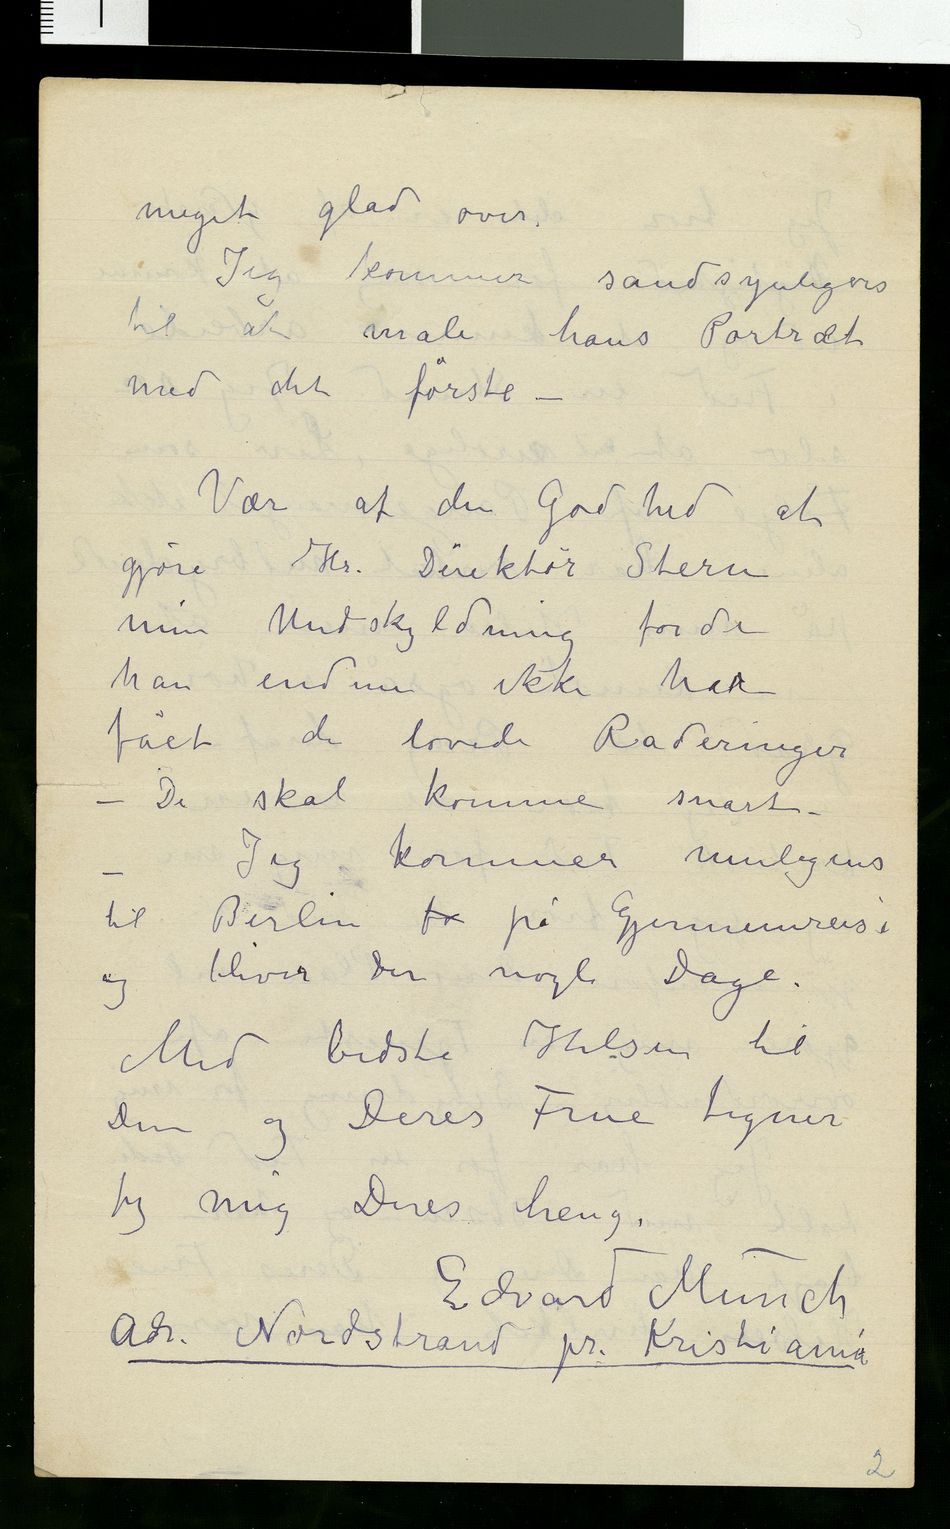 meget glad over.
Jeg kommer sandsynligvis
til at male hans Portræt
med det første –
Vær af den Godhed at
gjøre Hr. Direktør Stern
min Undskyldning fordi
han endnu ikke har
fået de lovede Raderinger
– De skal komme snart –
– Jeg kommer muligens
til Berlin fo på Gjennemreise
og bliver der nogle Dage.
Med bedste Hilsen til
Dem og Deres Frue tegner
jeg mig Deres heng.
Edvard Munch
Adr. Nordstrand pr. Kristiania
2